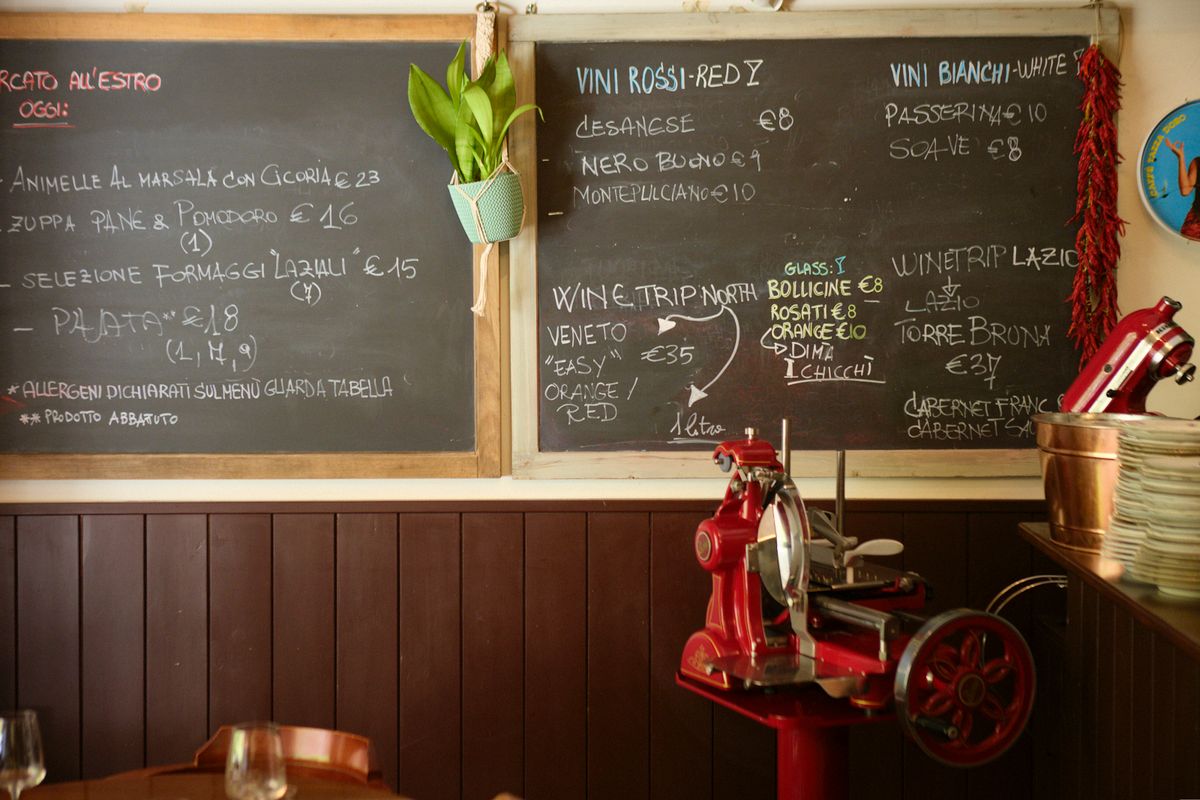 RCATO ALL'ESTRO
OGGI:
- ANIMELLE AL MARSALA CON CICORIA €23
- ZUPPA PANE & POMODORO €16
(1)
- SELEZIONE FORMAGGI "LAZIALI" €15
(7)
€18
(1, 7, 9)
* ALLERGENI DICHIARATI SUL MENÙ GUARDA TABELLA
** PRODOTTO ABBATUTO
VINI ROSSI - RED
CESANESE €8
NERO BUONO € 9
MONTEPULCIANO € 10
VINI BIANCHI - WHITE
PASSERINA € 10
SOAVE €8
WINE TRIP NORTH
VENETO
"EASY" €35
ORANGE /
RED
1 litro
GLASS:
BOLLICINE €8
ROSATI €8
ORANGE €10
DIMÀ
I CHICCHÌ
WINE TRIP LAZIO
LAZIO
TORRE BRUNA
€37
CABERNET FRANC
CABERNET SAU
CAFFÈ TAZZA D'ORO